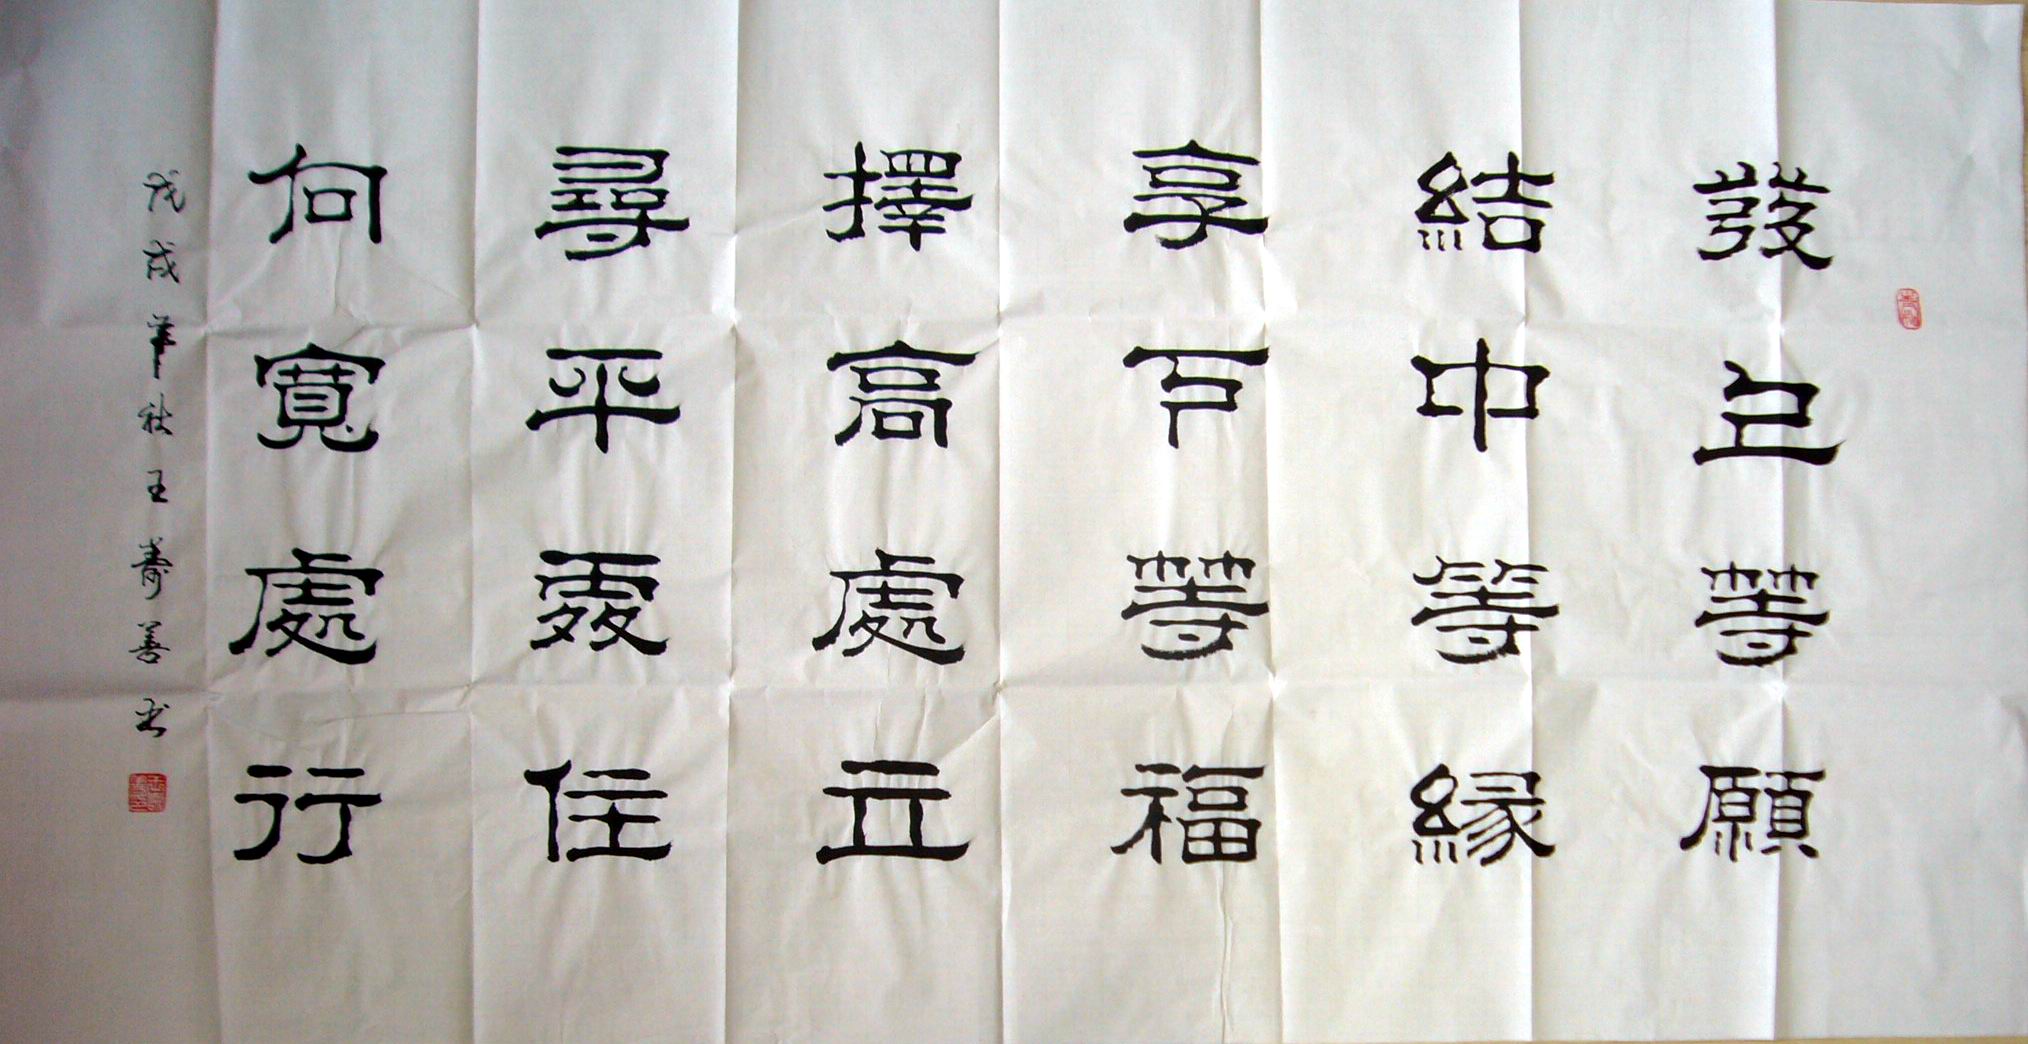 發上等願
結中等緣
享下等福
擇高處立
尋平處住
向寬處行
戊戌年秋王壽善书